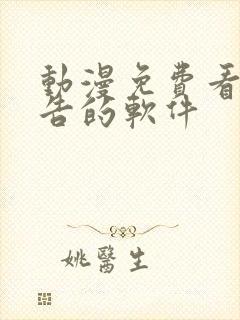 動漫免費看
告的軟件
姚醫生